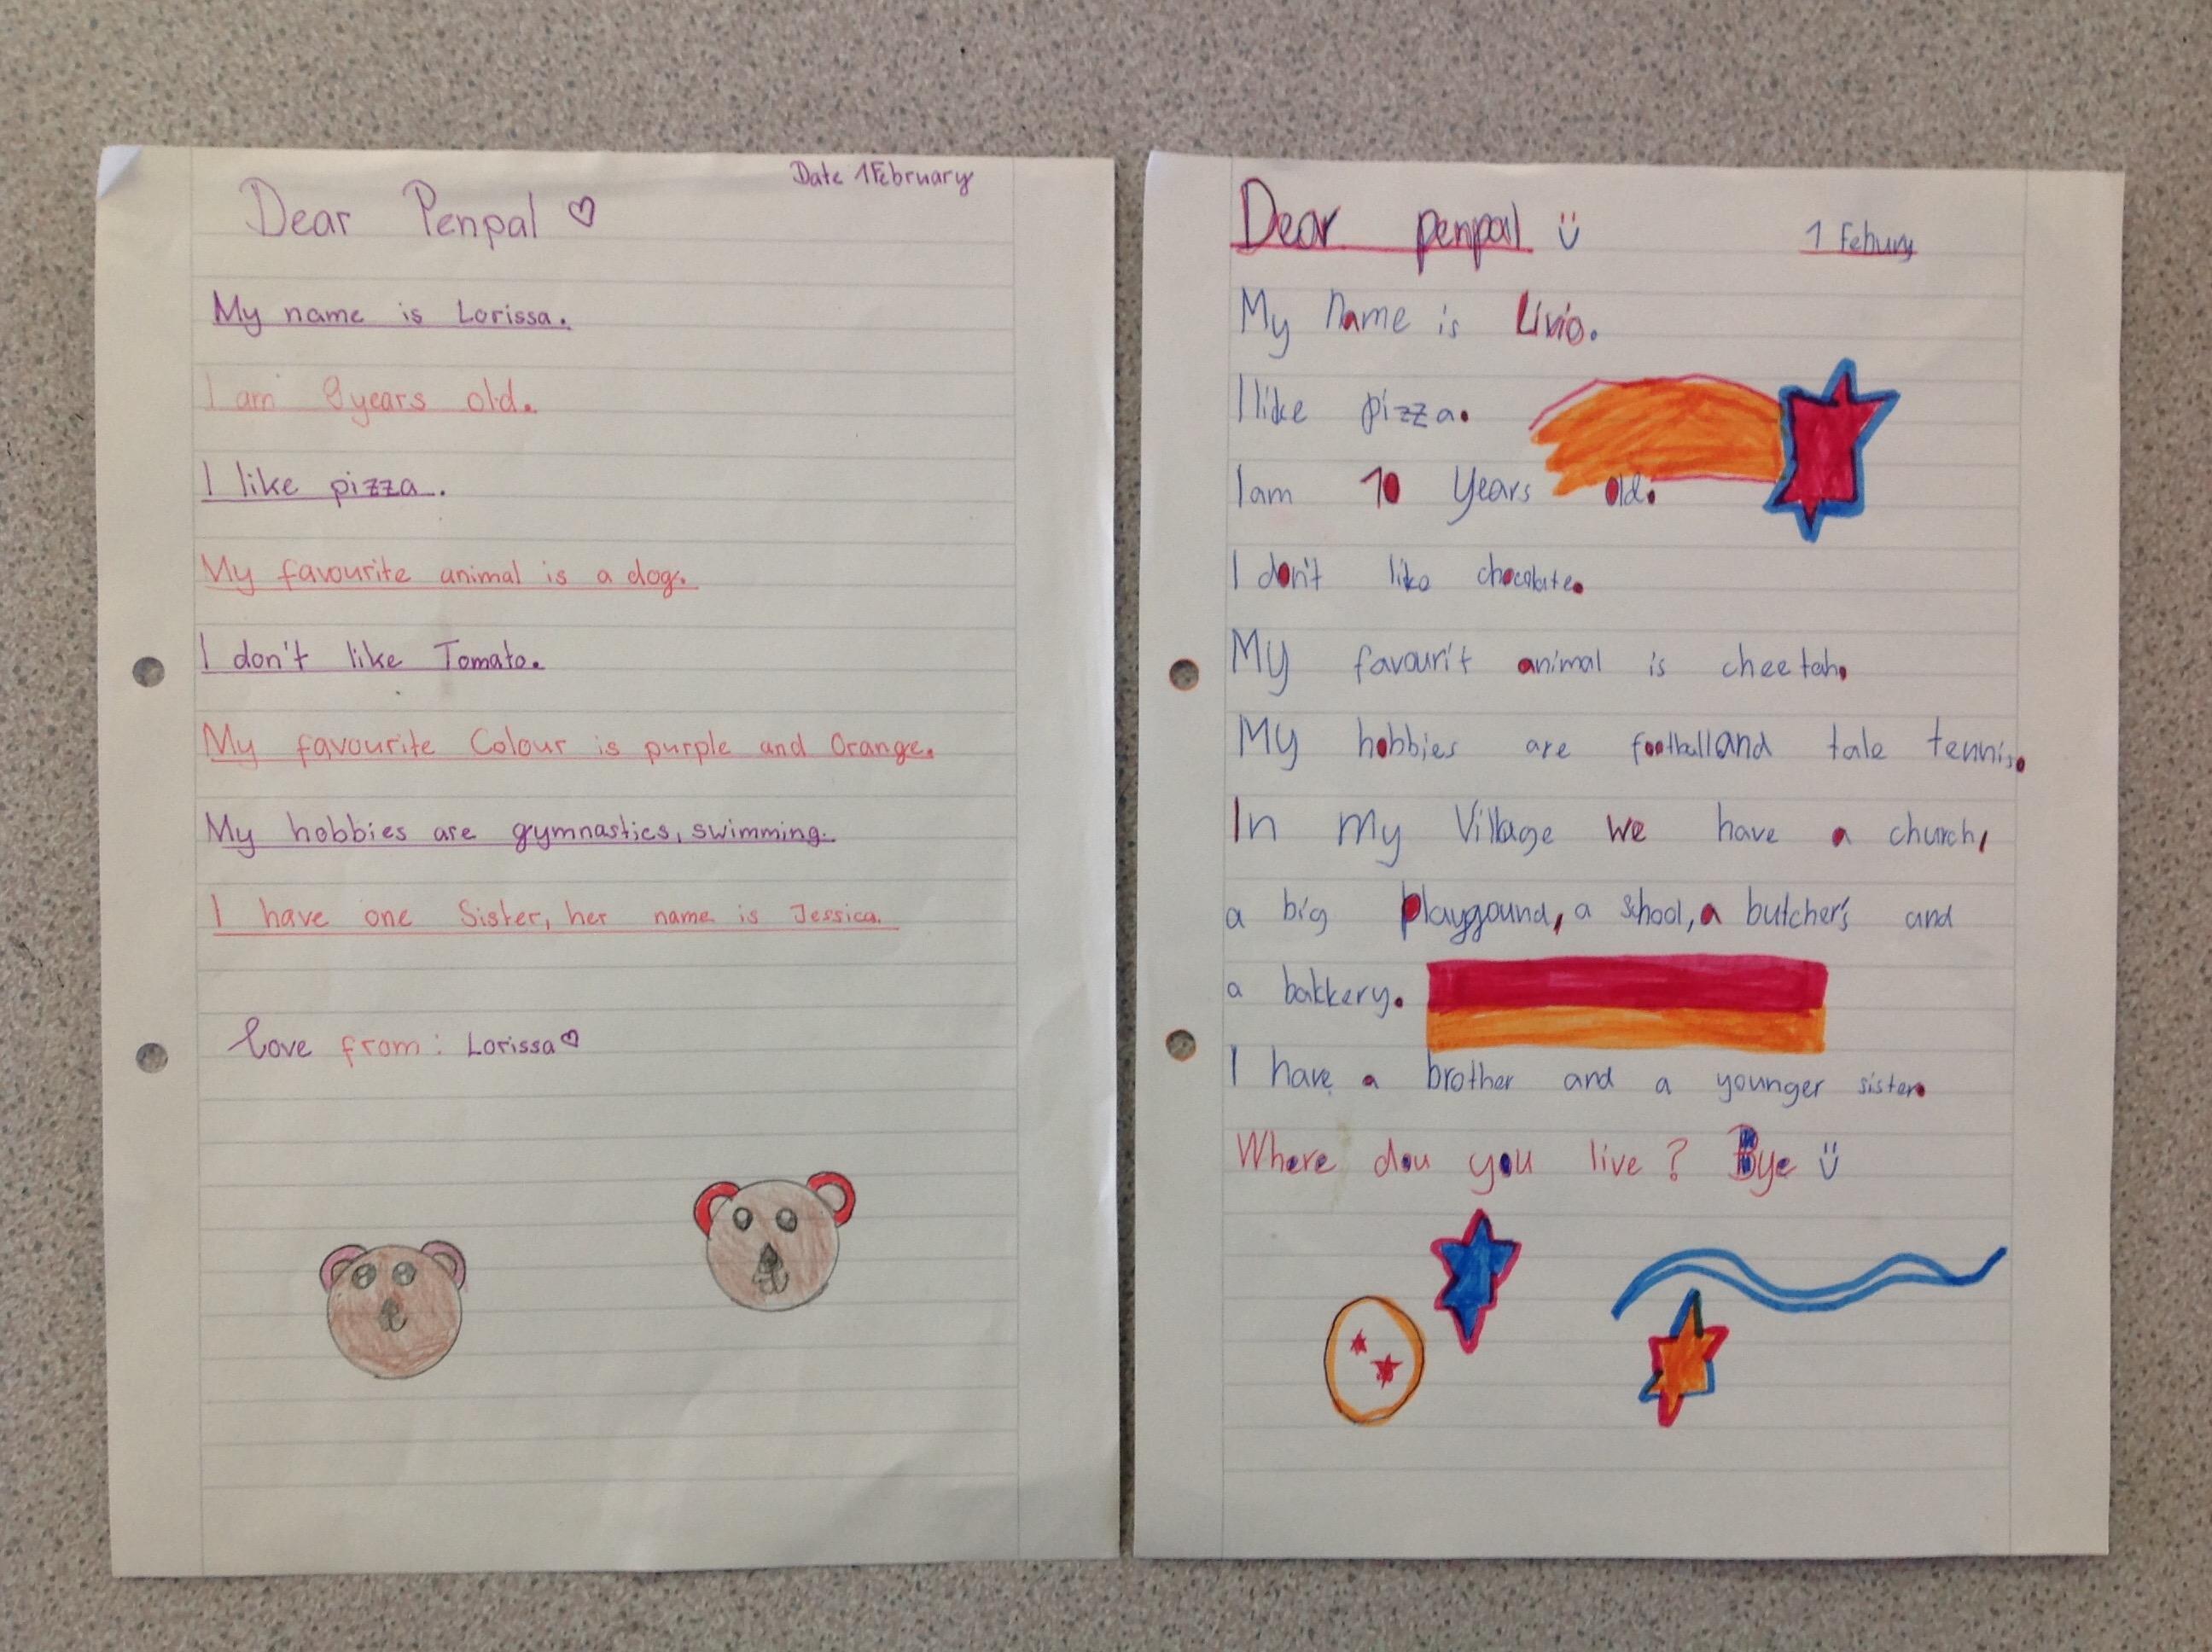 Date 1 February
Dear Penpal
My name is Lorissa.
I am 9 years old.
I like pizza.
My favourite animal is a dog.
I don't like Tomato.
My favourite Colour is purple and Orange.
My hobbies are gymnastics, swimming.
I have one Sister, her name is Jessica.
love from: Lorissa
Dear penpal
1 Febury
My name is Livio.
I like pizza.
I am 10 years old.
I don't like chocolate.
My favourit animal is cheetah.
My hobbies are football and tale tennis.
In my Village we have a church,
a big playgound, a school, a butcher's and
a bakkery.
I have a brother and a younger sister.
Where dou you live? Bye